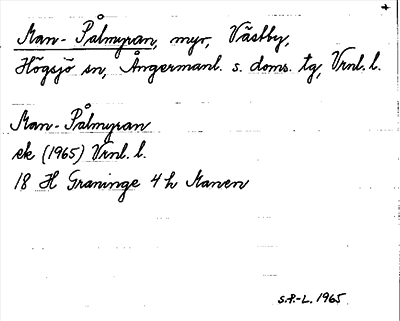 Man-Pålmyran, myr, Västby,
Högsjö sn, Ångermanl. s. doms. tg, Vrnl. l.
Man-Pålmyran
ek (1965) Vrnl. l.
18 H Graninge 4 h Manen
S.P.-L. 1965